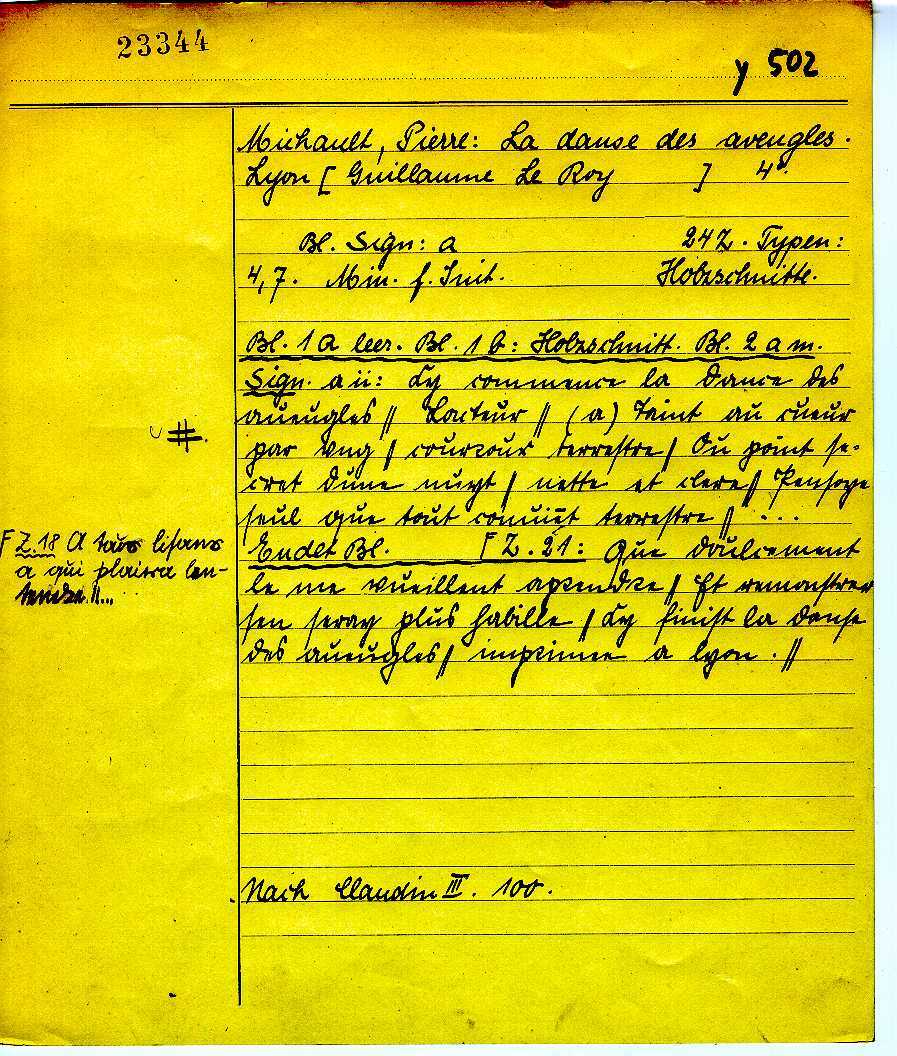 23344
y 502
Michault, Pierre: La danse des aveugles.
Lyon [ Guillaume Le Roy ] 4°.
Bl. Sign: a 24Z. Typen:
4,7. Min. f. Init. Holzschnitte.
Bl. 1a leer. Bl. 1b: Holzschnitt. Bl. 2a m.
Sign. aii: Cy commence la dance des
aueugles // Lacteur // (a) Taint au cueur
par vng / courzour terrestre / Ou point se-
cret dune nuyt / nette et clere // Pensoye
seul que tout conuiēt terrestre // ...
Endet Bl. Γ Z. 21: Que doulcement
le me vueillent aprendre / Et remonstrer
sen seray plus habille / Cy finist la danse
des aueugles // imprimee a lyon. //
#.
Γ Z. 18 A tous lisans
a qui plaira len-
tendre //...
Nach Claudin III. 100.